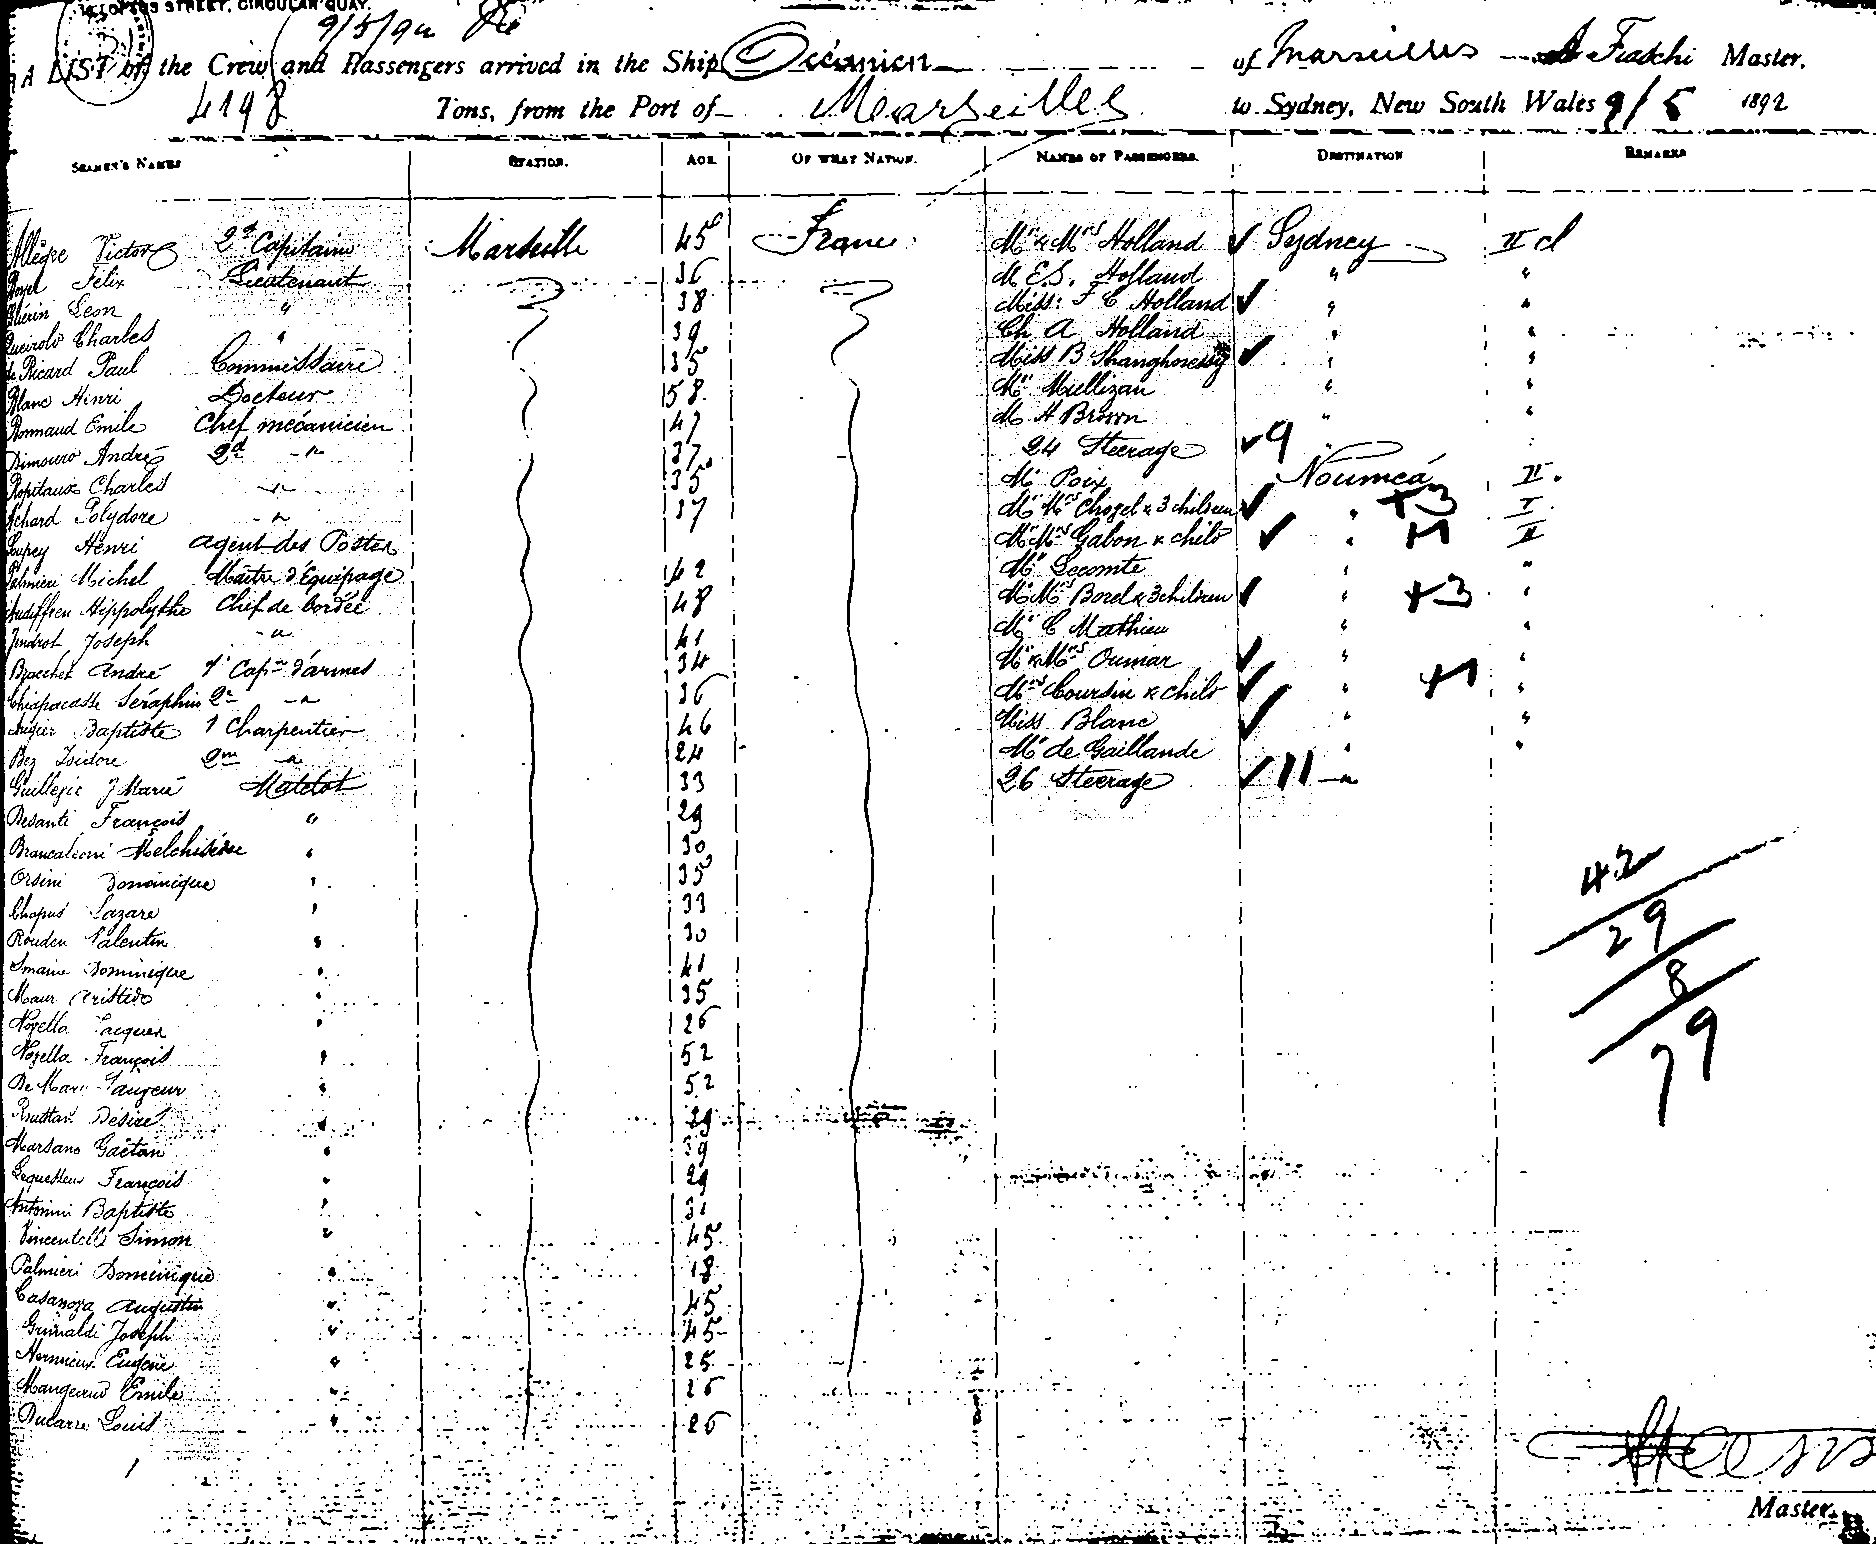 LOFTUS STREET, CIRCULAR QUAY.
9/5/92
A LIST of the Crew and Passengers arrived in the Ship Océanien of Marseilles A Fiaschi Master,
4198 Tons, from the Port of Marseilles to Sydney, New South Wales 9/5 1892
SEAMEN'S NAMES STATION. AGE OF WHAT NATION. NAMES OF PASSENGERS. DESTINATION REMARKS
Allègre Victor 2d Capitaine Marseille 45 France Mr & Mrs Holland ✓ Sydney II cl
Félix Lieutenant 36 M E.S. Holland " "
Leon " 38 Miss F C Holland ✓ " "
Queirolo Charles " 39 Ch A Holland " "
de Ricard Paul Commissaire 35 Miss B ✓ " "
Blanc Henri Docteur 58 Mr Mullizan " "
Ronnaud Emile Chef mécanicien 47 M H Brown " "
André 2d " 37 24 Steerage ✓9 "
Charles " 35 Mr Poix Nouméa II.
Achard Polydore " 37 Mr Mrs Chozel & 3 children ✓ " +3 I
Henri Agent des Postes Mr Mrs Gabon & child ✓ " +1 II
Palmieri Michel Maître d'Equipage 42 Mr Lecomte " "
Audiffren Hippolythe Chef de bordée 48 Mr Mrs Borel & 3 children ✓ " +3 "
Joseph " 41 Mr C Mathieu " "
André 1r Capne d'armes 34 Mr & Mrs Oumar ✓ " "
Chiapacasse Séraphin 2e " 36 Mrs Coursin & child ✓ " +1 "
Augier Baptiste 1 Charpentier 46 Miss Blanc ✓ " "
Bez Isidore 2me " 24 Mr de Gaillande " "
J Marie Matelot 33 26 Steerage ✓11 "
Desanti François " 29
Brancaleoni " 30
Orsini Dominique " 35
Chapus Lazare " 33
Rouden Valentin " 30
Dominique " 41
Maur Aristide " 35
Nozella Jacques " 26
Nozella François " 52
De Mari " 52
Désiré " 29
Marsano Gaëtan " 39
François " 29
Antonini Baptiste " 31
Vincentelli Simon " 45
Palmieri Dominique " 18
Casanova Augustin " 45
Grimaldi Joseph " 45
Eugène " 25
Mangeaud Emile " 26
Ducarre Louis " 26
42
29
8
79
Master.